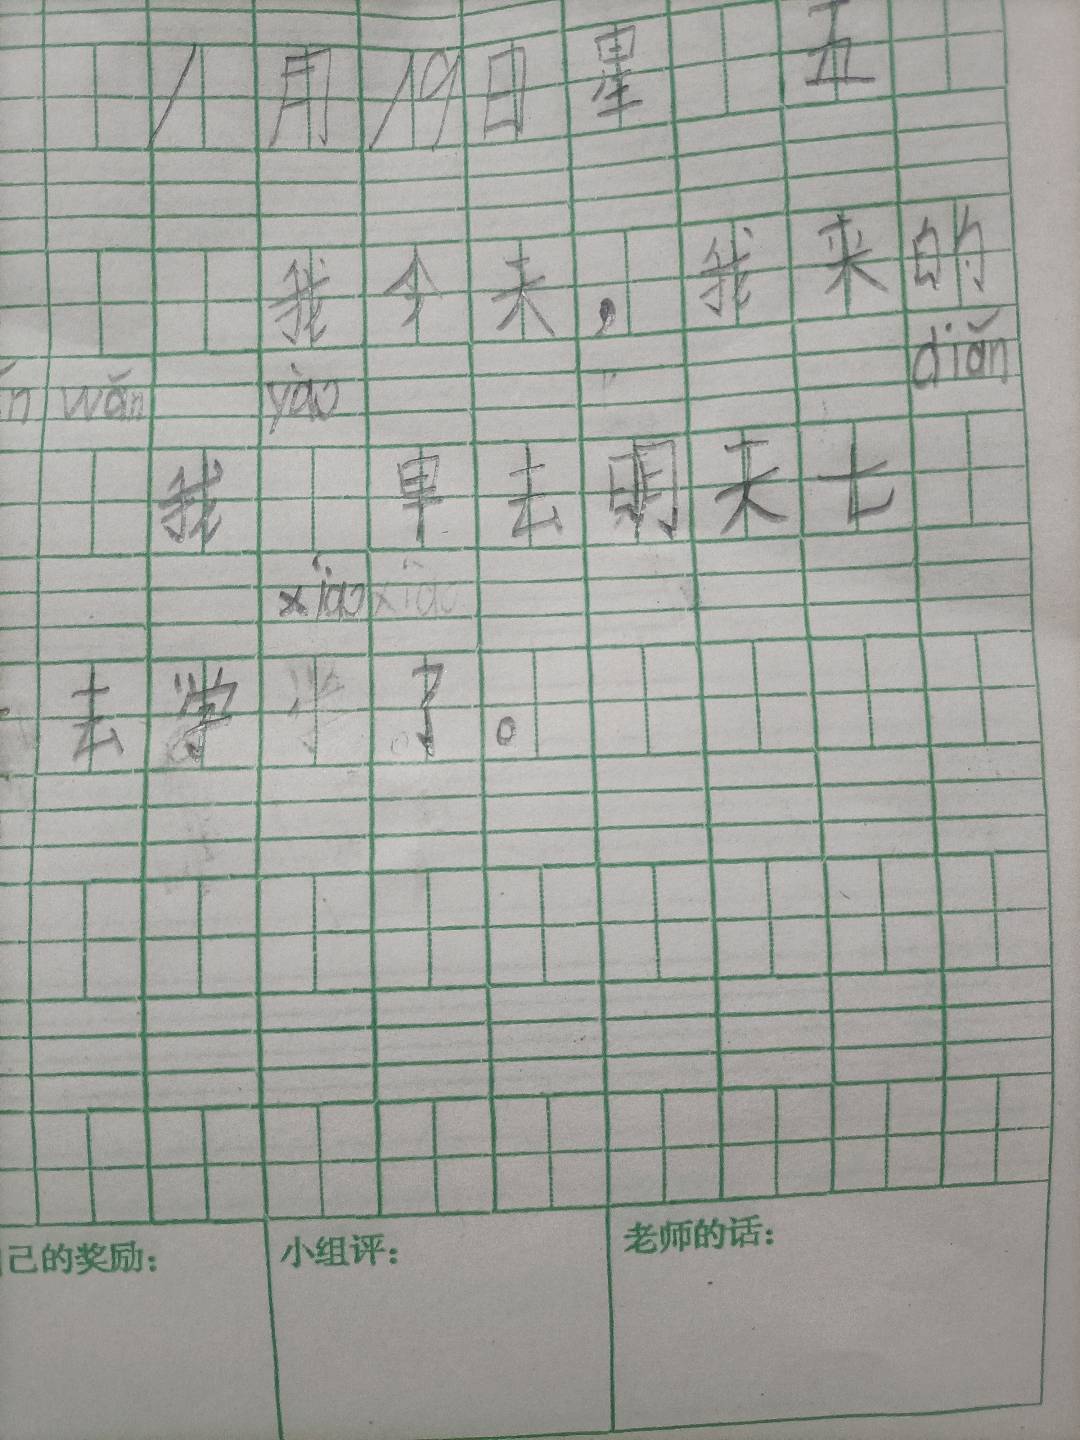 1月19日星 五
我今天,我来的
wǎn yào diǎn
我 早去明天七
xiào
去学 了。
己的奖励: 小组评: 老师的话: